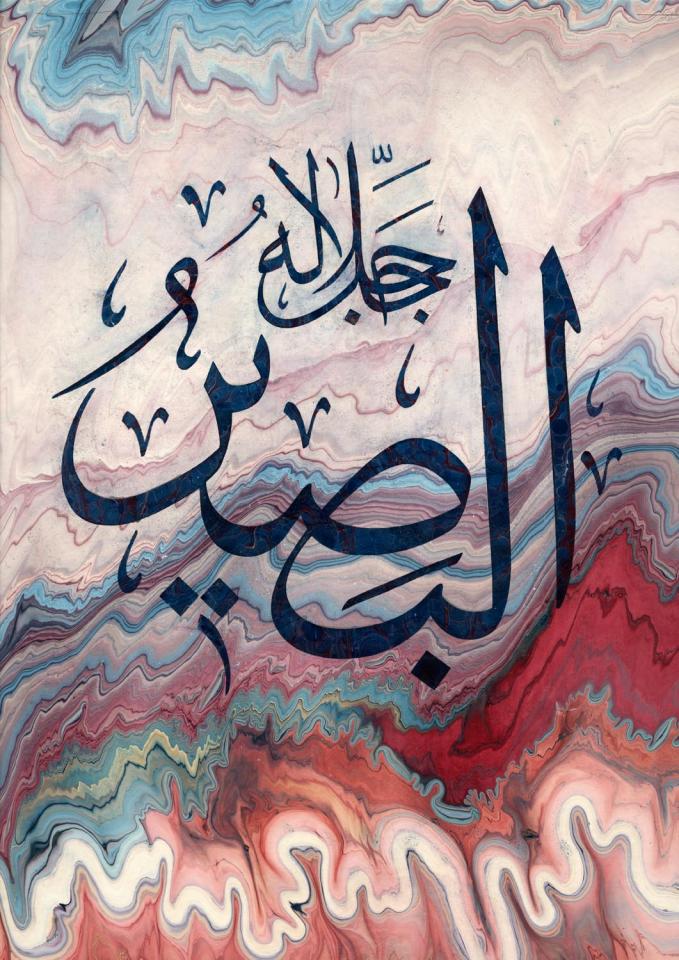 البَصِيرُ
جَلَّ جَلَالُهُ